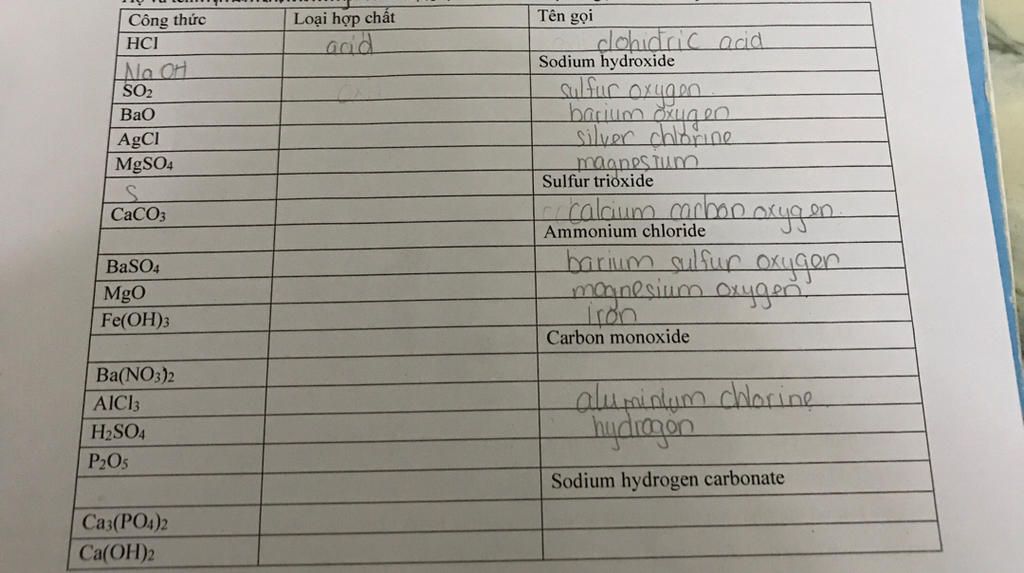 Công thức Loại hợp chất Tên gọi
HCl acid clohidric acid
Na OH Sodium hydroxide
SO2 sulfur oxygen
BaO barium oxygen
AgCl silver chlorine
MgSO4 magnesium
S Sulfur trioxide
CaCO3 calcium carbon oxygen
Ammonium chloride
BaSO4 barium sulfur oxygen
MgO magnesium oxygen
Fe(OH)3 iron
Carbon monoxide
Ba(NO3)2
AlCl3 aluminium chlorine
H2SO4 hydrogen
P2O5
Sodium hydrogen carbonate
Ca3(PO4)2
Ca(OH)2